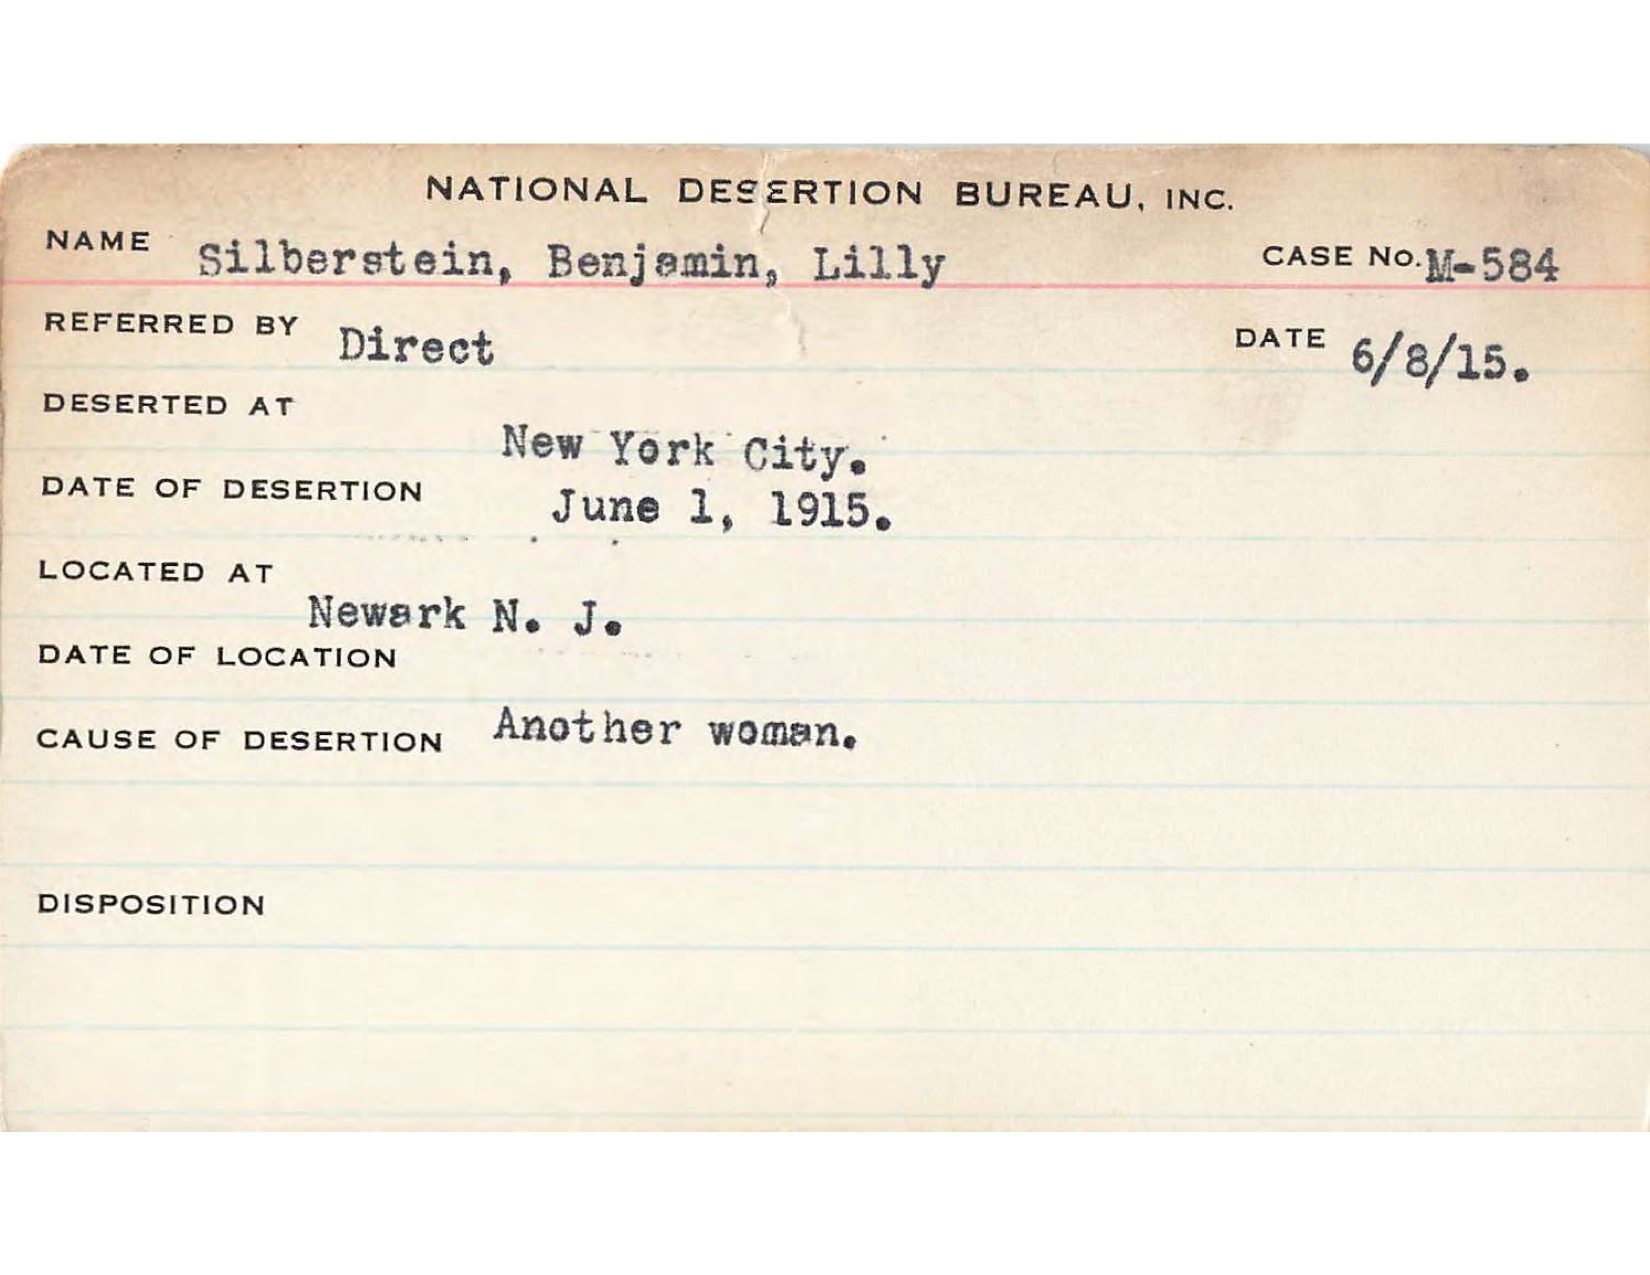 NATIONAL DESERTION BUREAU, INC.
NAME Silberstein, Benjamin, Lilly CASE No. M-584
REFERRED BY Direct DATE 6/8/15.
DESERTED AT
New York City.
DATE OF DESERTION June 1, 1915.
LOCATED AT
Newark N. J.
DATE OF LOCATION
CAUSE OF DESERTION Another woman.
DISPOSITION